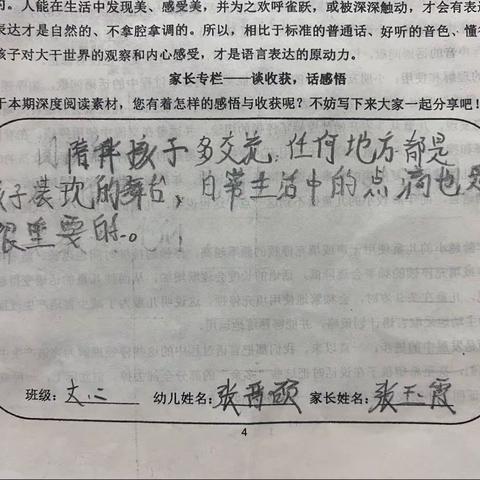 的。人能在生活中发现美、感受美，并为之欢呼雀跃，或被深深触动，才会有表达
表达才是自然的、不拿腔拿调的。所以，相比于标准的普通话、好听的音色、懂得
孩子对大千世界的观察和内心感受，才是语言表达的原动力。
家长专栏——谈收获，话感悟
于本期深度阅读素材，您有着怎样的感悟与收获呢？不妨写下来大家一起分享吧！
陪伴孩子多交流，任何地方都是
孩子表现的舞台，日常生活中的点滴也是
很重要的。
班级：大二 幼儿姓名：张晋硕 家长姓名：张玉霞
4